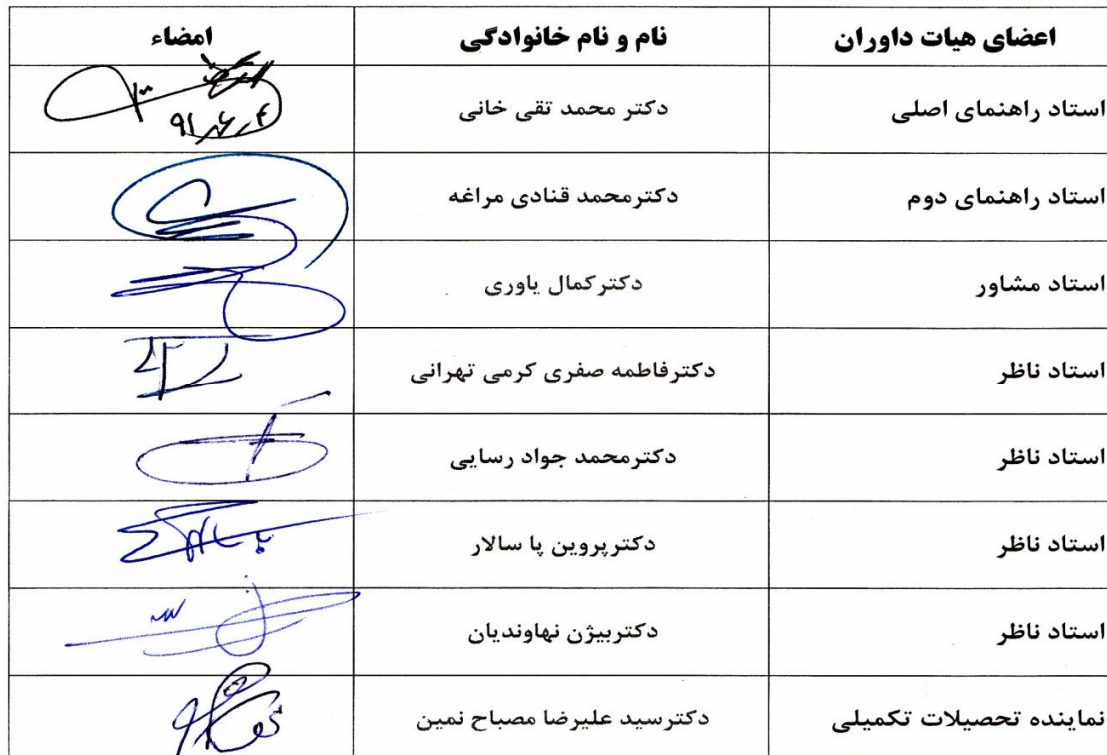 اعضای هیات داوران نام و نام خانوادگی امضاء
استاد راهنمای اصلی دکتر محمد تقی خانی
۹۱٫۶٫۴
استاد راهنمای دوم دکترمحمد قنادی مراغه
استاد مشاور دکترکمال یاوری
استاد ناظر دکترفاطمه صفری کرمی تهرانی
استاد ناظر دکترمحمد جواد رسایی
استاد ناظر دکترپروین پا سالار
استاد ناظر دکتربیژن نهاوندیان
نماینده تحصیلات تکمیلی دکترسید علیرضا مصباح نمین